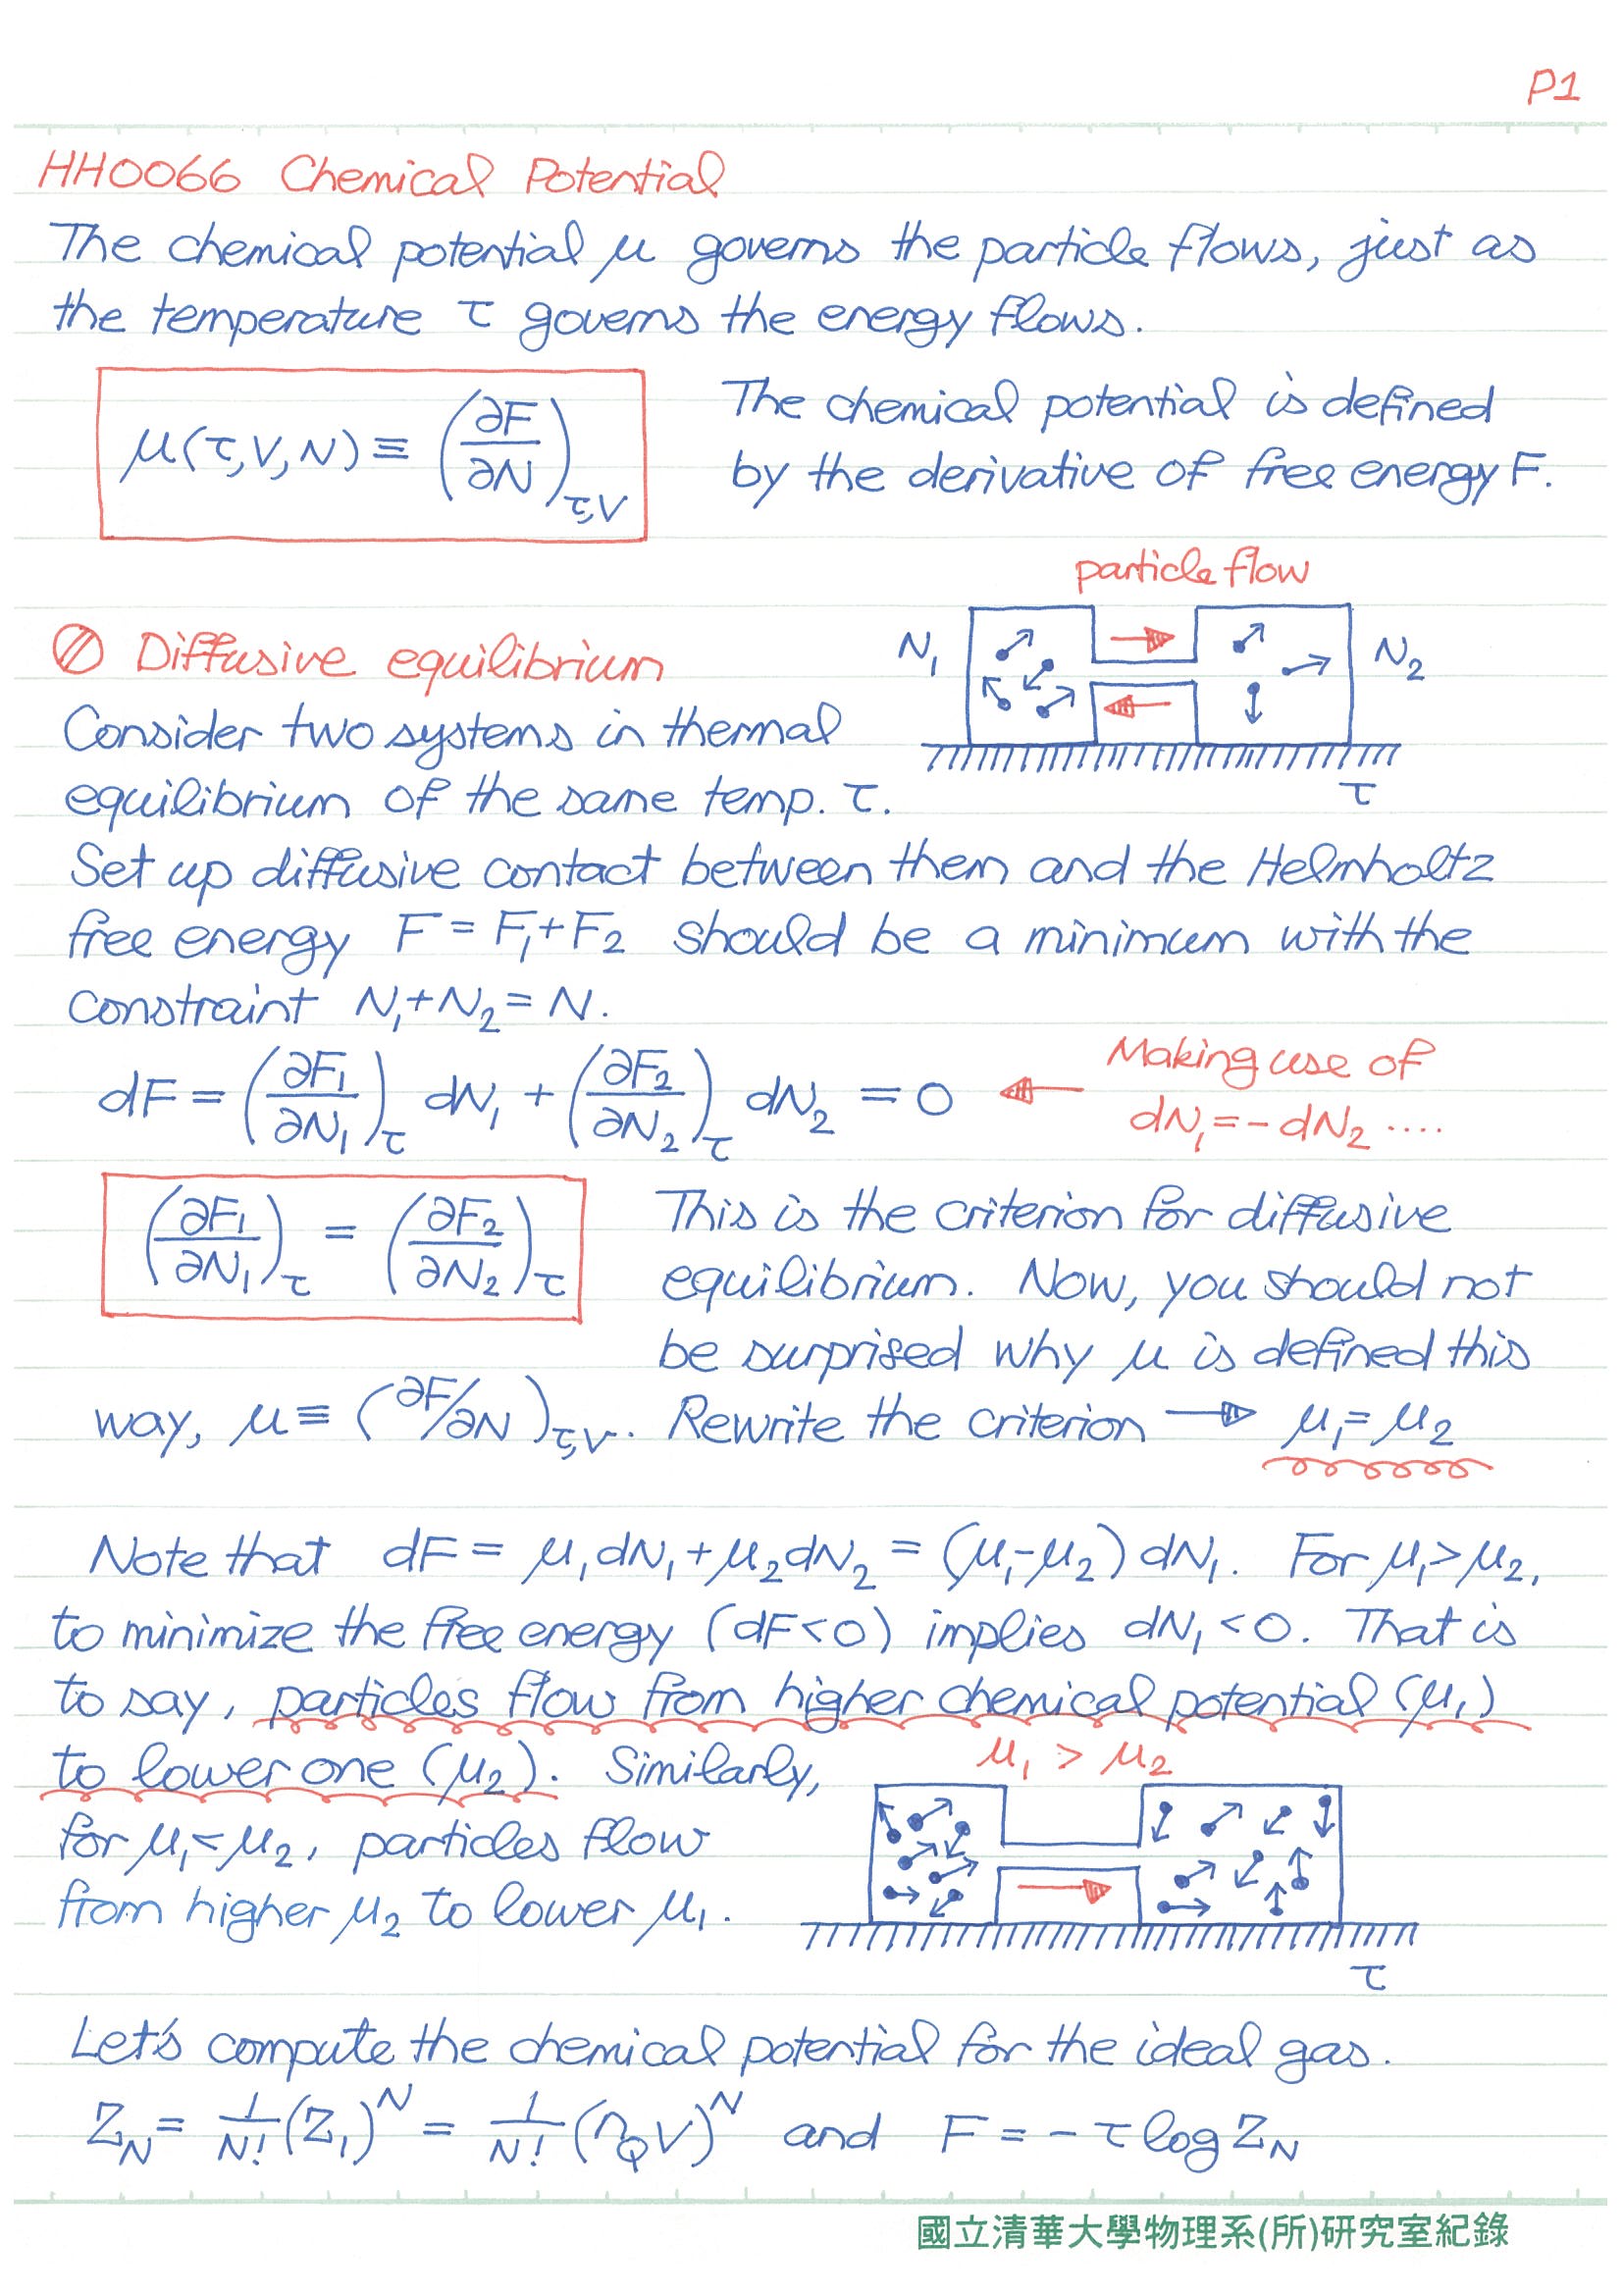 P1
HH0066 Chemical Potential
The chemical potential μ governs the particle flows, just as
the temperature τ governs the energy flows.
μ(τ,V,N) ≡ (∂F/∂N)_τ,V
The chemical potential is defined
by the derivative of free energy F.
particle flow
N₁
N₂
τ
Diffusive equilibrium
Consider two systems in thermal
equilibrium of the same temp. τ.
Set up diffusive contact between them and the Helmholtz
free energy F = F₁+F₂ should be a minimum with the
constraint N₁+N₂ = N.
dF = (∂F₁/∂N₁)_τ dN₁ + (∂F₂/∂N₂)_τ dN₂ = 0 ←
Making use of
dN₁ = - dN₂ ....
(∂F₁/∂N₁)_τ = (∂F₂/∂N₂)_τ
This is the criterion for diffusive
equilibrium. Now, you should not
be surprised why μ is defined this
way, μ ≡ (∂F/∂N)_τ,V. Rewrite the criterion → μ₁ = μ₂
Note that dF = μ₁dN₁ + μ₂dN₂ = (μ₁-μ₂) dN₁. For μ₁>μ₂,
to minimize the free energy (dF<0) implies dN₁<0. That is
to say, particles flow from higher chemical potential (μ₁)
to lower one (μ₂). Similarly,
for μ₁<μ₂, particles flow
from higher μ₂ to lower μ₁.
μ₁ > μ₂
τ
Let's compute the chemical potential for the ideal gas.
Z_N = 1/N! (Z₁)^N = 1/N! (n_Q V)^N and F = - τ log Z_N
國立清華大學物理系(所)研究室紀錄